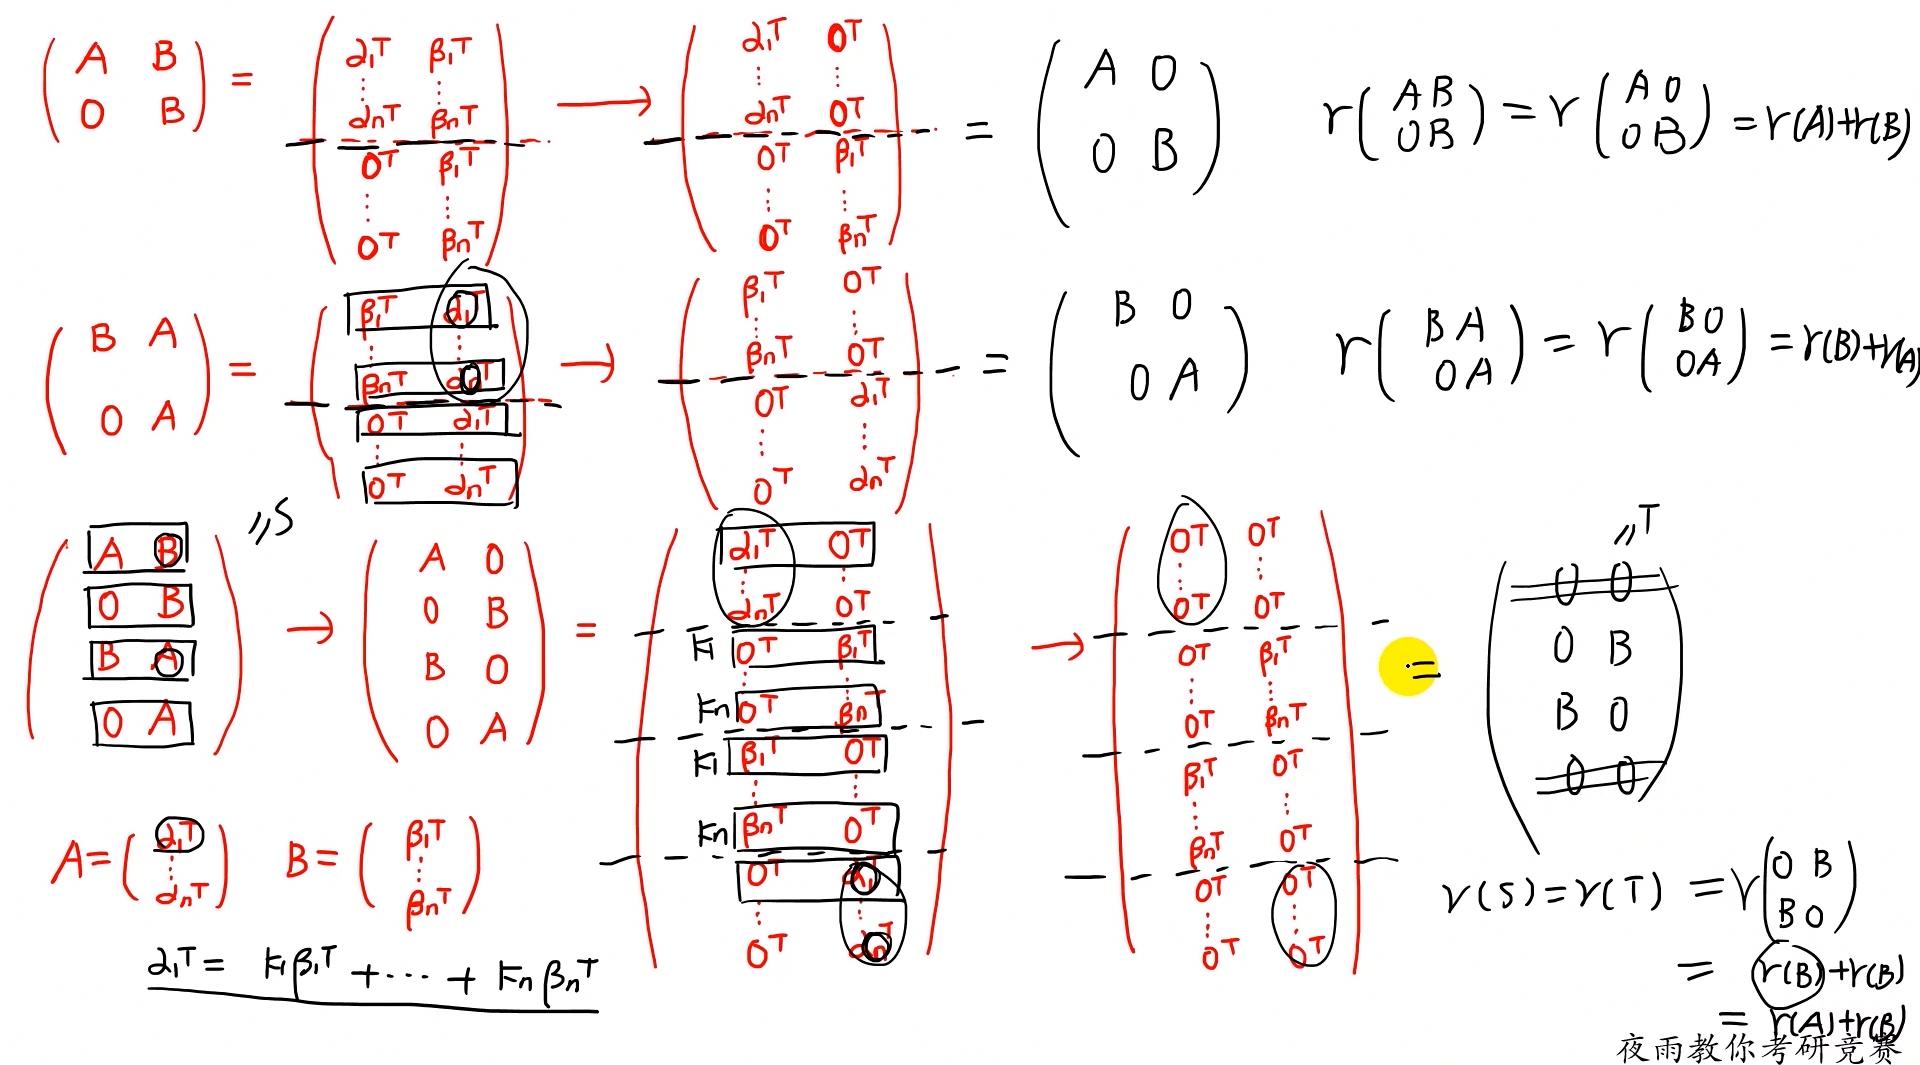 ( A B ; 0 B ) = ( α₁ᵀ β₁ᵀ ; ⋮ ⋮ ; αnᵀ βnᵀ ; 0ᵀ β₁ᵀ ; ⋮ ⋮ ; 0ᵀ βnᵀ ) → ( α₁ᵀ 0ᵀ ; ⋮ ⋮ ; αnᵀ 0ᵀ ; 0ᵀ β₁ᵀ ; ⋮ ⋮ ; 0ᵀ βnᵀ ) = ( A 0 ; 0 B ) r( A B ; 0 B ) = r( A 0 ; 0 B ) = r(A)+r(B)
( B A ; 0 A ) = ( β₁ᵀ α₁ᵀ ; ⋮ ⋮ ; βnᵀ αnᵀ ; 0ᵀ α₁ᵀ ; ⋮ ⋮ ; 0ᵀ αnᵀ ) → ( β₁ᵀ 0ᵀ ; ⋮ ⋮ ; βnᵀ 0ᵀ ; 0ᵀ α₁ᵀ ; ⋮ ⋮ ; 0ᵀ αnᵀ ) = ( B 0 ; 0 A ) r( B A ; 0 A ) = r( B 0 ; 0 A ) = r(B)+r(A)
( A B ; 0 B ; B A ; 0 A ) "S → ( A 0 ; 0 B ; B 0 ; 0 A ) = ( α₁ᵀ 0ᵀ ; ⋮ ⋮ ; αnᵀ 0ᵀ ; k₁ 0ᵀ β₁ᵀ ; ⋮ ⋮ ; kn 0ᵀ βnᵀ ; k₁ β₁ᵀ 0ᵀ ; ⋮ ⋮ ; kn βnᵀ 0ᵀ ; 0ᵀ α₁ᵀ ; ⋮ ⋮ ; 0ᵀ αnᵀ ) → ( 0ᵀ 0ᵀ ; ⋮ ⋮ ; 0ᵀ 0ᵀ ; 0ᵀ β₁ᵀ ; ⋮ ⋮ ; 0ᵀ βnᵀ ; β₁ᵀ 0ᵀ ; ⋮ ⋮ ; βnᵀ 0ᵀ ; 0ᵀ 0ᵀ ; ⋮ ⋮ ; 0ᵀ 0ᵀ ) = ( 0 0 ; 0 B ; B 0 ; 0 0 ) "T
A = ( α₁ᵀ ; ⋮ ; αnᵀ ) B = ( β₁ᵀ ; ⋮ ; βnᵀ )
α₁ᵀ = k₁β₁ᵀ + ⋯ + knβnᵀ
r(S) = r(T) = r( 0 B ; B 0 )
= r(B)+r(B)
= r(A)+r(B)
夜雨教你考研竞赛